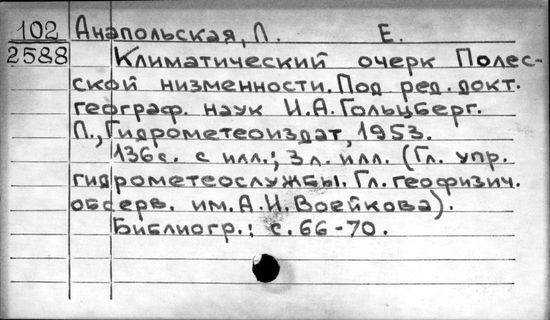 102 Анапольская, Л. Е.
2588 Климатический очерк Полес-
ской низменности. Под ред. докт.
географ. наук И.А. Гольцберг.
Л., Гидрометеоиздат, 1953.
136с. с илл.; 3 л. илл. (Гл. упр.
гидрометеослужбы. Гл. геофизич.
обсерв. им. А.И. Воейкова).
Библиогр.: с. 66-70.